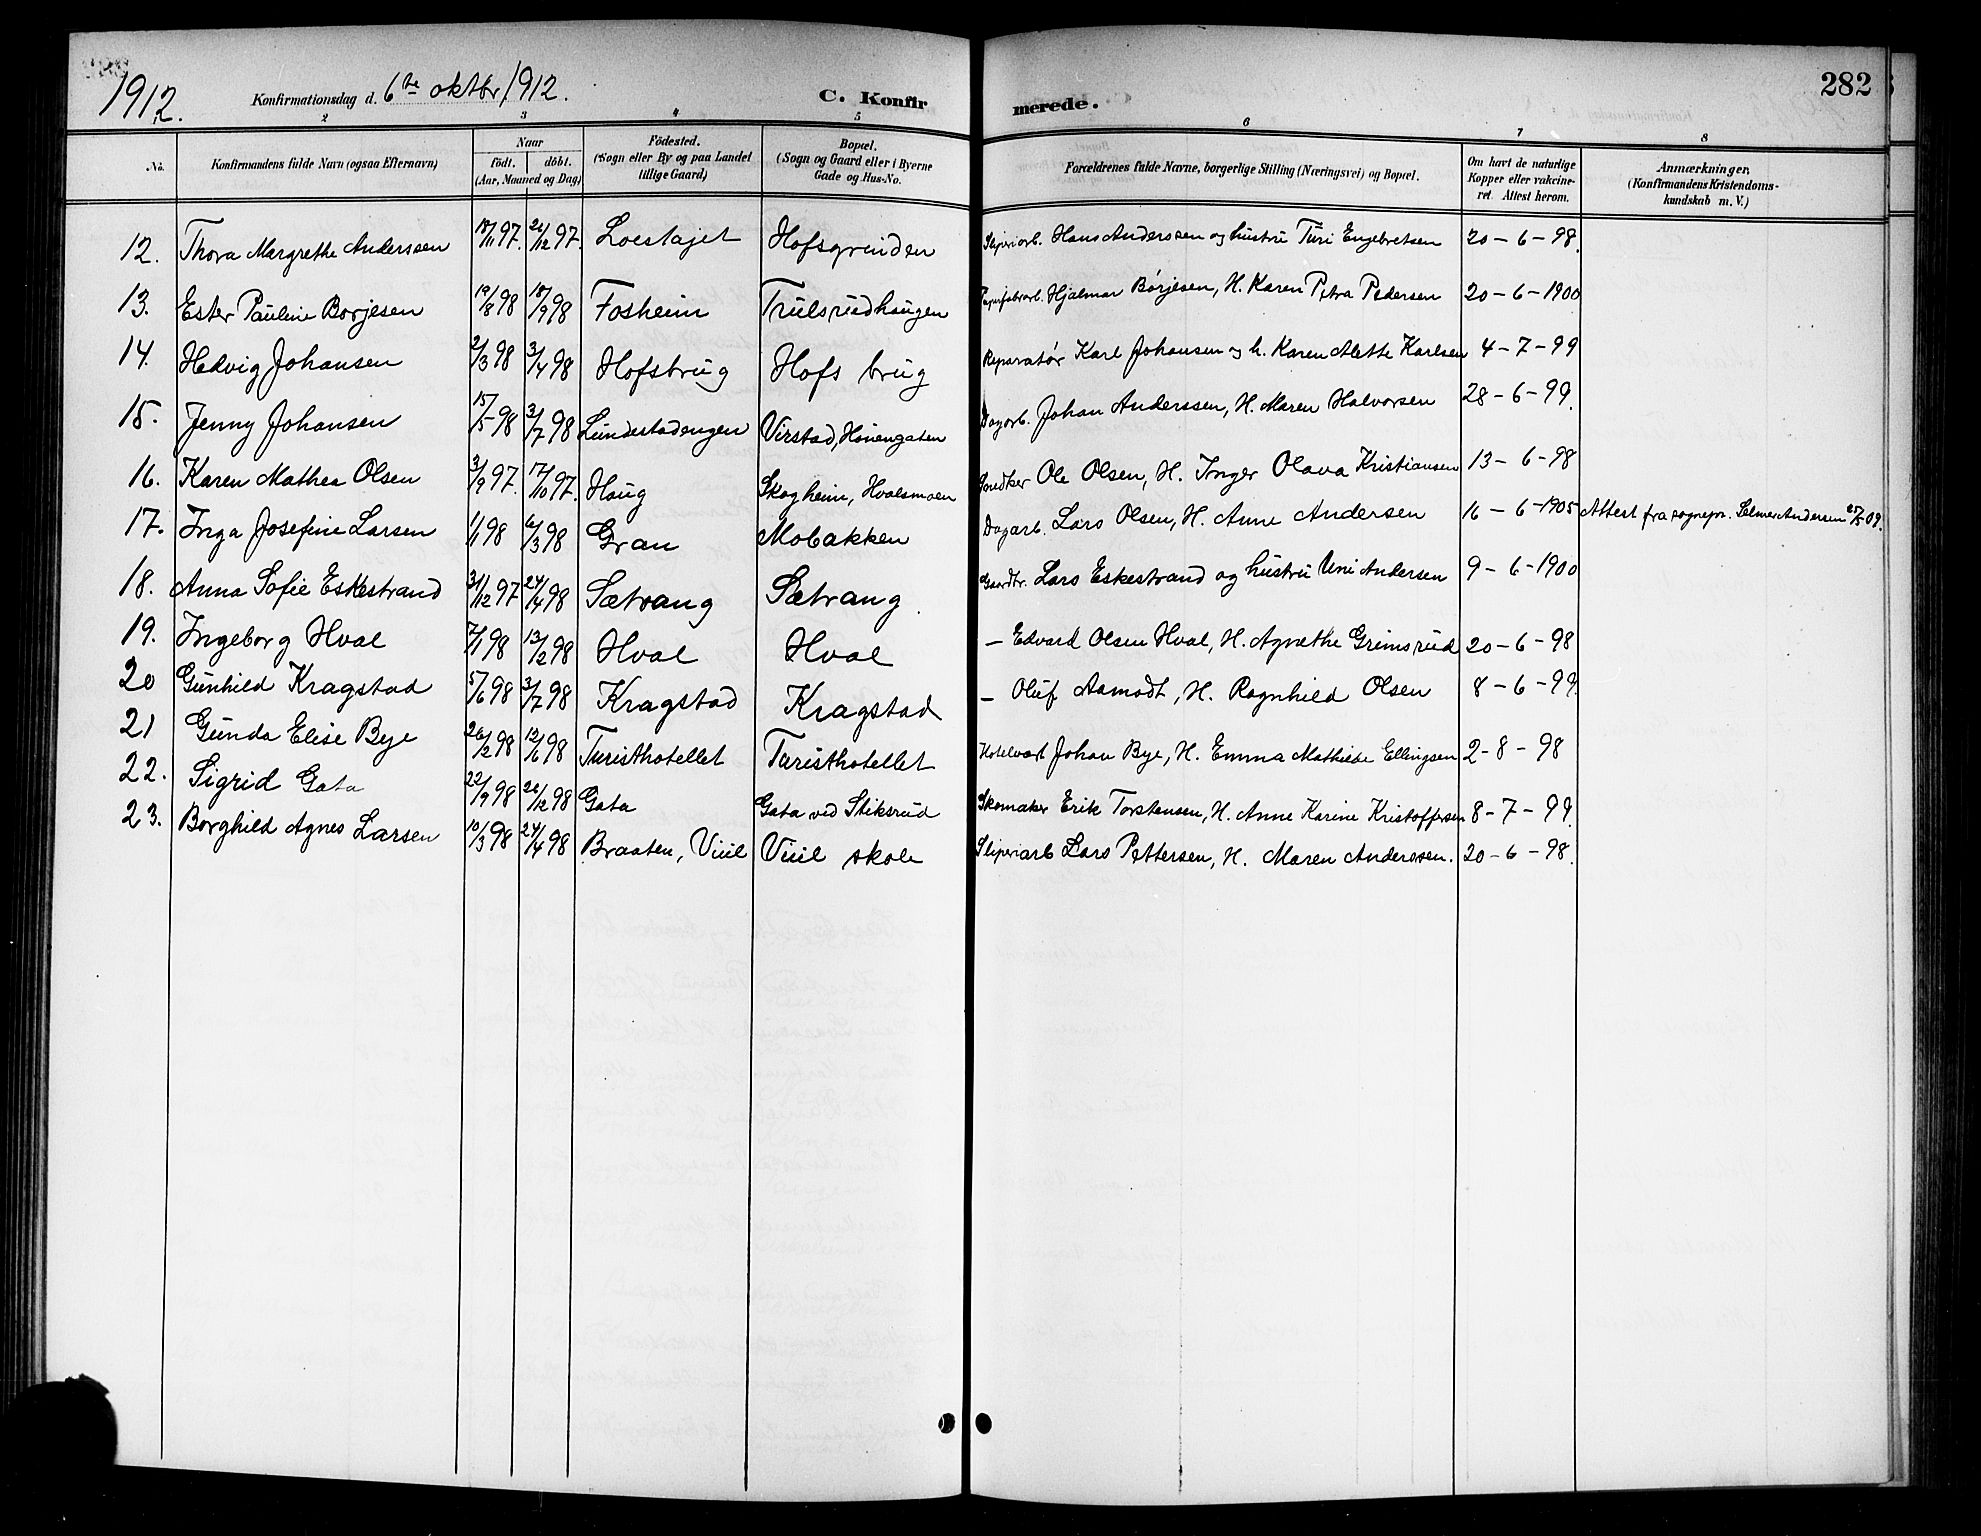 1912.
Konfirmationsdag d. 6te oktbr. 1912.
C. Konfir
merede.
282
1 2 3 4 5 6 7 8
No.
Konfirmandens fulde Navn (ogsaa Efternavn)
Naar
födt. döbt.
(Aar, Maaned og Dag)
Födested.
(Sogn eller By og paa Landet
tillige Gaard)
Bopæl.
(Sogn og Gaard eller i Byerne
Gade og Hus-No.
Forældrenes fulde Navne, borgerlige Stilling (Næringsvei) og Bopæl.
Om havt de naturlige
Kopper eller vakcine-
ret. Attest herom.
Anmærkninger.
(Konfirmandens Kristendoms-
kundskab m. V.)
12. Thora Margrethe Anderssen 18/11 97. 26/12 97. Loestajet Hofsgrinden Sliperiarb. Hans Anderssen og hustru Turi Engebretsen 20-6-98.
13. Ester Pauline Borjesen 19/8 98 18/9 98 Fosheim Trulsrudhaugen Papirfabrarb. Hjalmar Børjesen, H. Karen Petra Pedersen 20-6-1900
14. Hedvig Johansen 2/3 98 3/4 98 Hofsbrug Hofs brug Reparatør Karl Johansen og h. Karen Alette Karlsen 4-7-99
15. Jenny Johansen 15/5 98 3/7 98 Lundestadengen Virstad, Hønengaten Dagarb. Johan Anderssen, H. Maren Halvorsen 28-6-99.
16. Karen Mathea Olsen 3/9 97. 17/10 97. Haug Skogheim, Hvalsmoen Snedker Ole Olsen, H. Inger Olava Kristiansen 13-6-98
17. Inga Josefine Larsen 1/1 98 6/3 98 Gran Mobakken Dagarb. Lars Olsen, H. Anne Andersen 16-6-1905 Attest fra sognepr. Selmer Andersen 25/5 09.
18. Anna Sofie Eskestrand 31/12 97 24/4 98 Sætrang Sætrang Gaardbr. Lars Eskestrand og hustru Uni Andersen 9-6-1900
19. Ingeborg Hval 7/1 98 13/2 98 Hval Hval – Edvard Olsen Hval, H. Agnethe Grimsrud 20-6-98
20 Gunhild Kragstad 5/6 98 3/7 98 Kragstad Kragstad – Oluf Aamodt, H. Ragnhild Olsen 8-6-99.
21 Gunda Elise Bye 26/2 98 12/6 98 Turisthotellet Turisthotellet Hotelvært Johan Bye, H. Emma Mathilde Ellingsen 2-8-98
22. Sigrid Gata 22/9 98 26/12 98 Gata Gata ved Stiksrud Skomaker Erik Torstensen, H. Anne Karine Kristoffersen 8-7-99.
23. Borghild Agnes Larsen 10/3 98 24/4 98 Braaten, Viul Viul skole Sliperiarb Lars Pettersen, H. Maren Anderssen. 20-6-98.